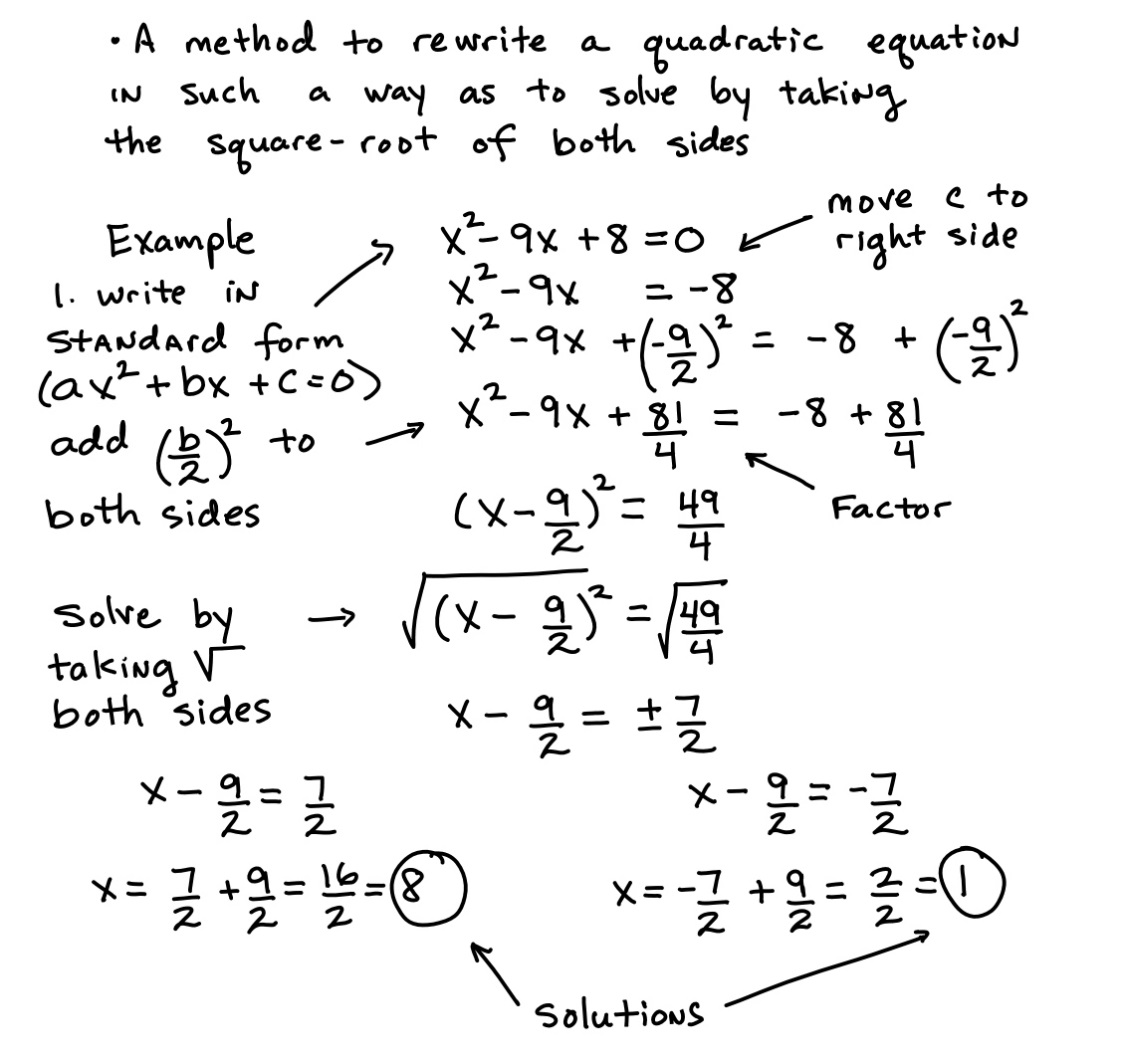 • A method to rewrite a quadratic equation
in such a way as to solve by taking
the square-root of both sides
Example
1. write in
standard form
(ax² + bx + c = 0)
x² - 9x + 8 = 0
move c to
right side
x² - 9x = -8
x² - 9x + (-9/2)² = -8 + (-9/2)²
add (b/2)² to
both sides
x² - 9x + 81/4 = -8 + 81/4
Factor
(x - 9/2)² = 49/4
Solve by
taking √
both sides
√(x - 9/2)² = √49/4
x - 9/2 = ± 7/2
x - 9/2 = 7/2
x = 7/2 + 9/2 = 16/2 = 8
x - 9/2 = -7/2
x = -7/2 + 9/2 = 2/2 = 1
solutions